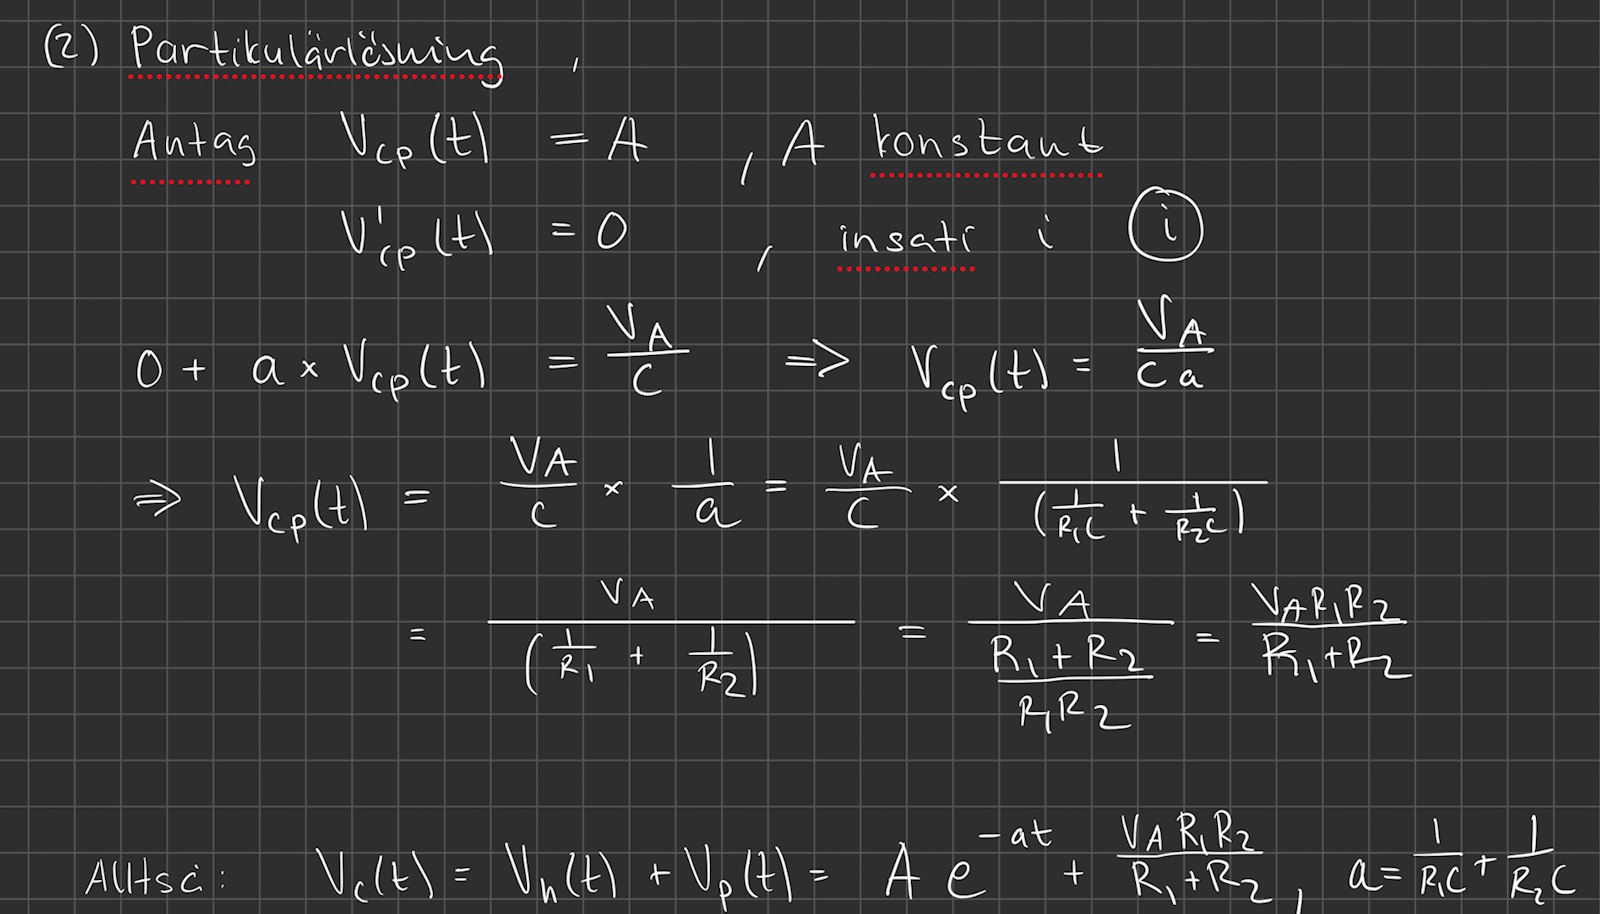 (2) Partikulärlösning,
Antag V_cp(t) = A , A konstant
V'_cp(t) = 0 , insatt i (i)
0 + a × V_cp(t) = V_A / C => V_cp(t) = V_A / (C a)
=> V_cp(t) = V_A / C × 1 / a = V_A / C × 1 / (1/(R_1 C) + 1/(R_2 C))
= V_A / (1/R_1 + 1/R_2) = V_A / ((R_1 + R_2) / (R_1 R_2)) = V_A R_1 R_2 / (R_1 + R_2)
Alltså: V_c(t) = V_h(t) + V_p(t) = A e^(-at) + V_A R_1 R_2 / (R_1 + R_2) , a = 1/(R_1 C) + 1/(R_2 C)